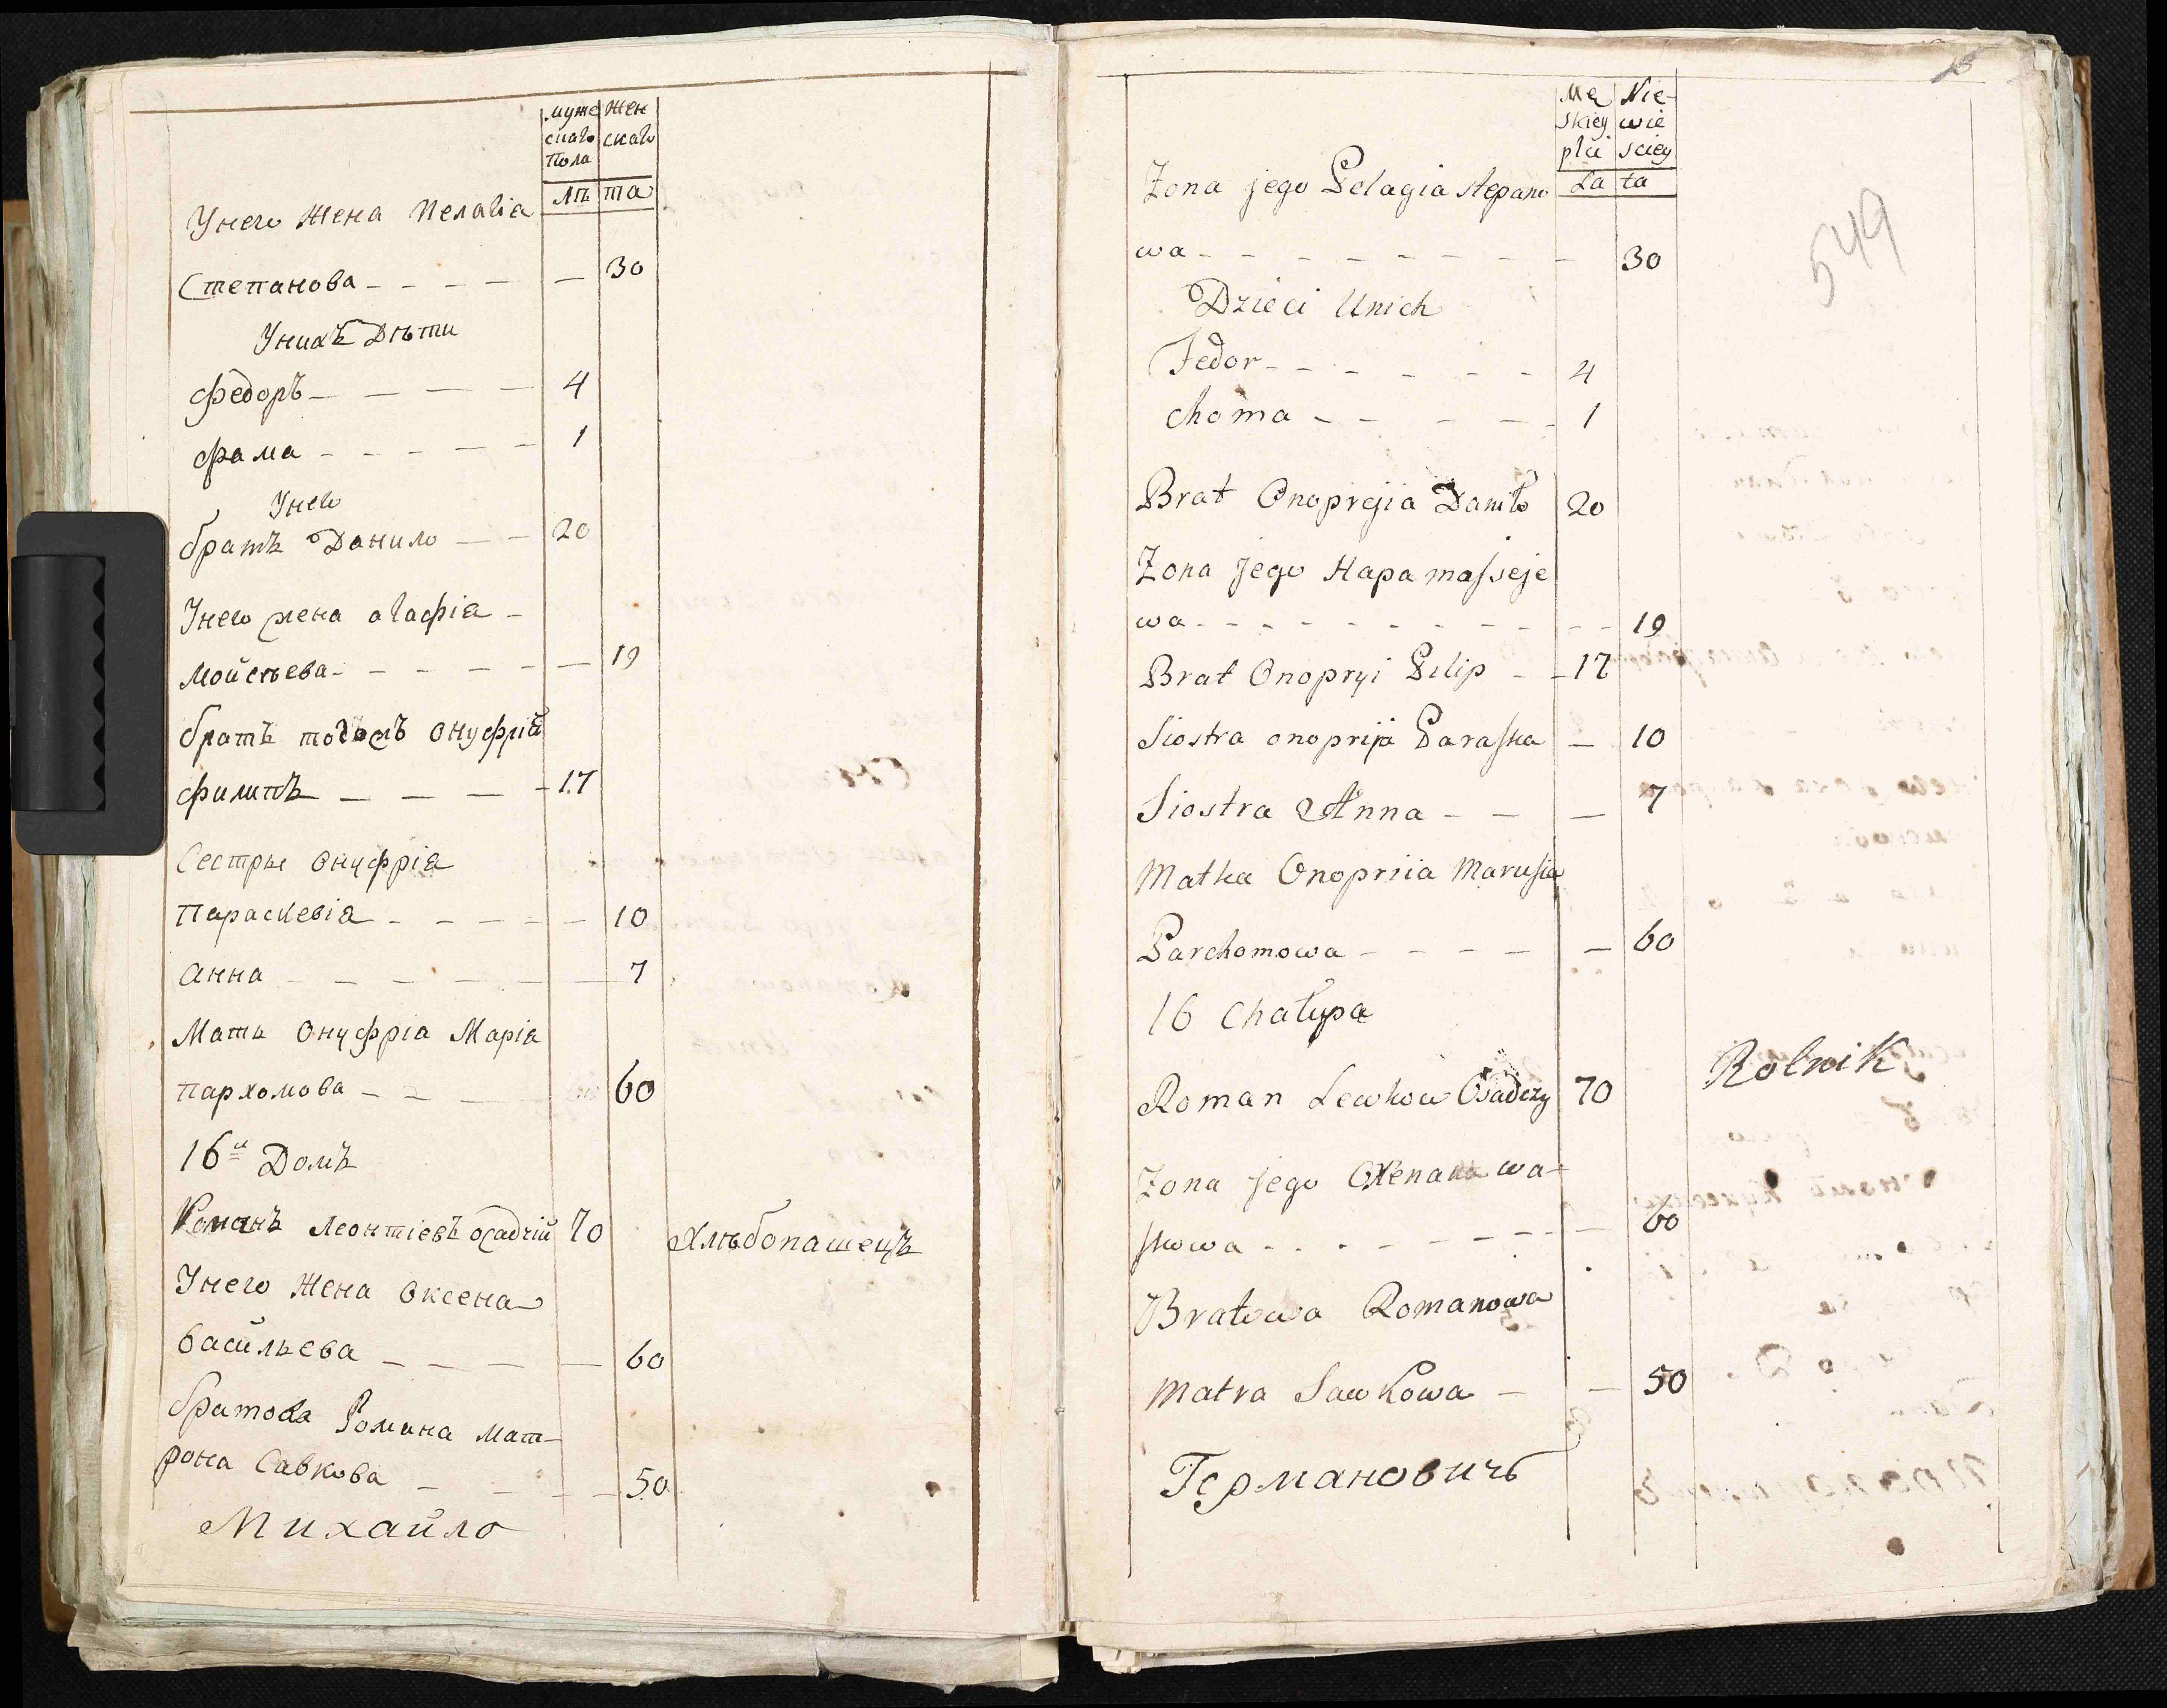 муже Жен
скаго скаго
пола
лѣ та
Унего Жена Пелагія
Степанова - - - - — 30
Унихъ Дѣти
Федоръ - — — — — 4
Фама - - - - — - 1
Унего
братъ Данило — — 20
Унего жена агафія -
Мойсѣева - - - - - — 19
братъ тогожъ Онуфрія
Филипъ — — — - 17
Сестры Онуфрія
Параскевія - - - - - — 10
Анна - — — — — — — 7
Мать Онуфрія Марія
Пархомова - - — 60
16й Домъ
Романъ Леонтіевъ Осадчій 70 Хлѣбопашецъ
Унего Жена Оксена
Васильева — — — — — 60
братова Романа Мат-
рона Савкова — - - - 50
Михайло
549
Mę Nie-
skiey wie
płci sciey
La ta
Zona jego Pelagia Stepano
wa - - - - - - - - - 30
Dzieci Unich
Fedor - - - - - - - 4
Choma - - - - - 1
Brat Onoprejia Daniło 20
Zona jego Hapa Mosseje
wa - - - - - - - - - - 19
Brat Onopryi Pilip - - 17
Siostra onoprija Paraska — 10
Siostra Anna - — — 7
Matka Onopriia Marusia
Parchomowa - - - - — 60
16 Chałupa
Roman Lewkow Osadczy 70 Rolnik
Zona jego Oxena wa-
skowa - - - - - - - - 60
Bratowa Romanowa
Matra Sawkowa - — 50
Германовичъ